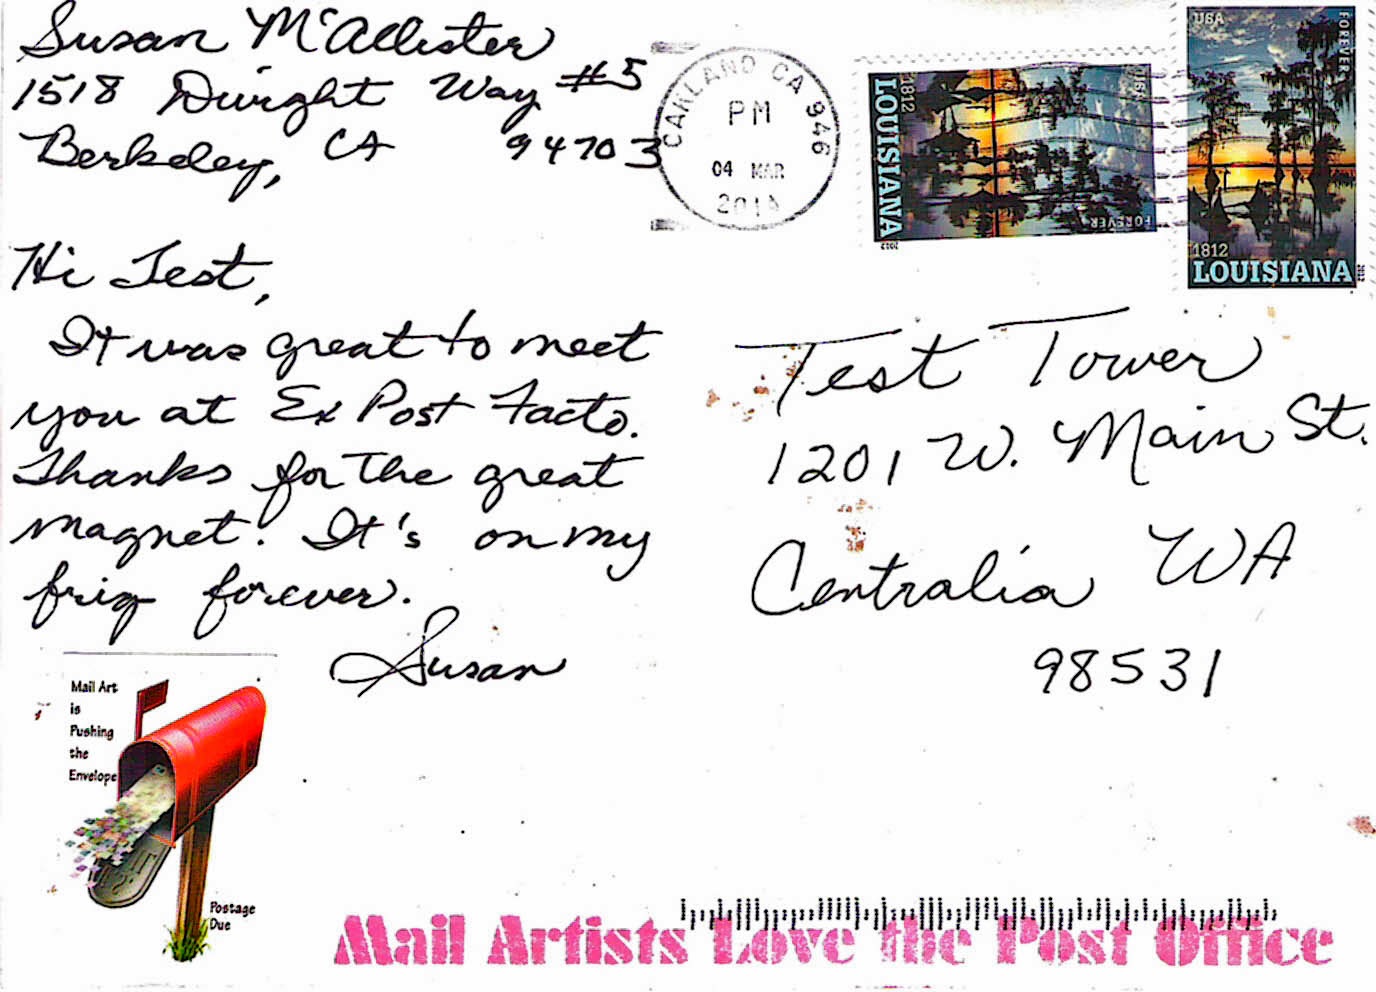 Susan McAllister
1518 Dwight Way #5
Berkeley, CA 94703
OAKLAND CA 946
PM
04 MAR
1812
LOUISIANA
USA
FOREVER
2012
USA
FOREVER
1812
LOUISIANA
2012
Hi Test,
It was great to meet
you at Ex Post Facto.
Thanks for the great
magnet. It's on my
frig forever.
Susan
Test Tower
1201 W. Main St.
Centralia WA
98531
Mail Art
is
Pushing
the
Envelope
Postage
Due
Mail Artists Love the Post Office